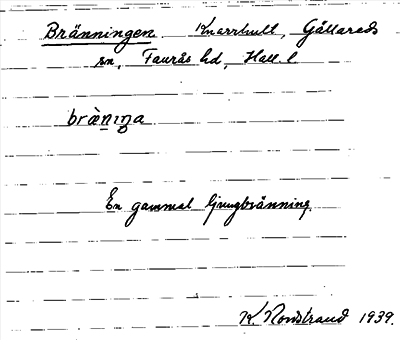 Bränningen Knarrhult, Gällareds
sn, Faurås hd, Hall. l.
brä̀niŋa
En gammal ljungbränning.
K. Nordstrand 1939.